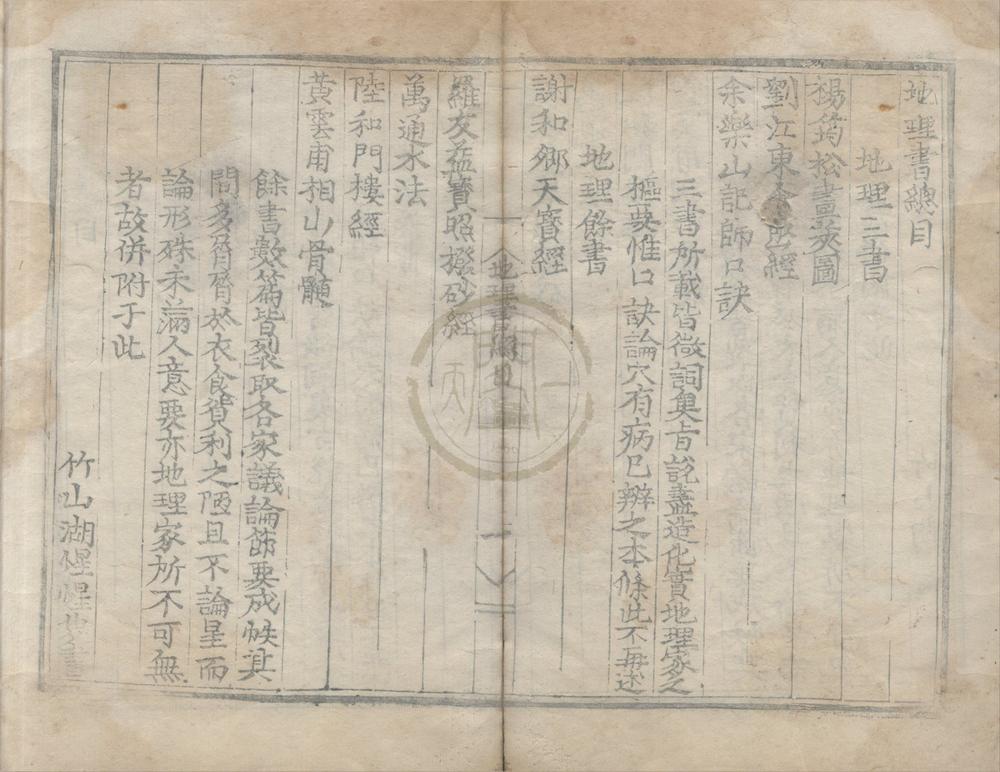 地理書總目
地理三書
楊筠松畫莢圖
劉江東金經
余樂山記師口訣
三書所載皆微詞奧旨說盡造化實地理家之
樞要惟口訣論穴有病已辨之本條此不再述
地理餘書
謝和卿天寶經
地理書總目 一
羅友益寶照撥砂經
萬通水法
陸和門樓經
黃雲甫相山骨髓
餘書數篇皆裂取各家議論節要成帙其
間多屑屑於衣食貨利之陋且不論星而
論形殊未滿人意要亦地理家所不可無
者故併附于此
竹山湖惺惺